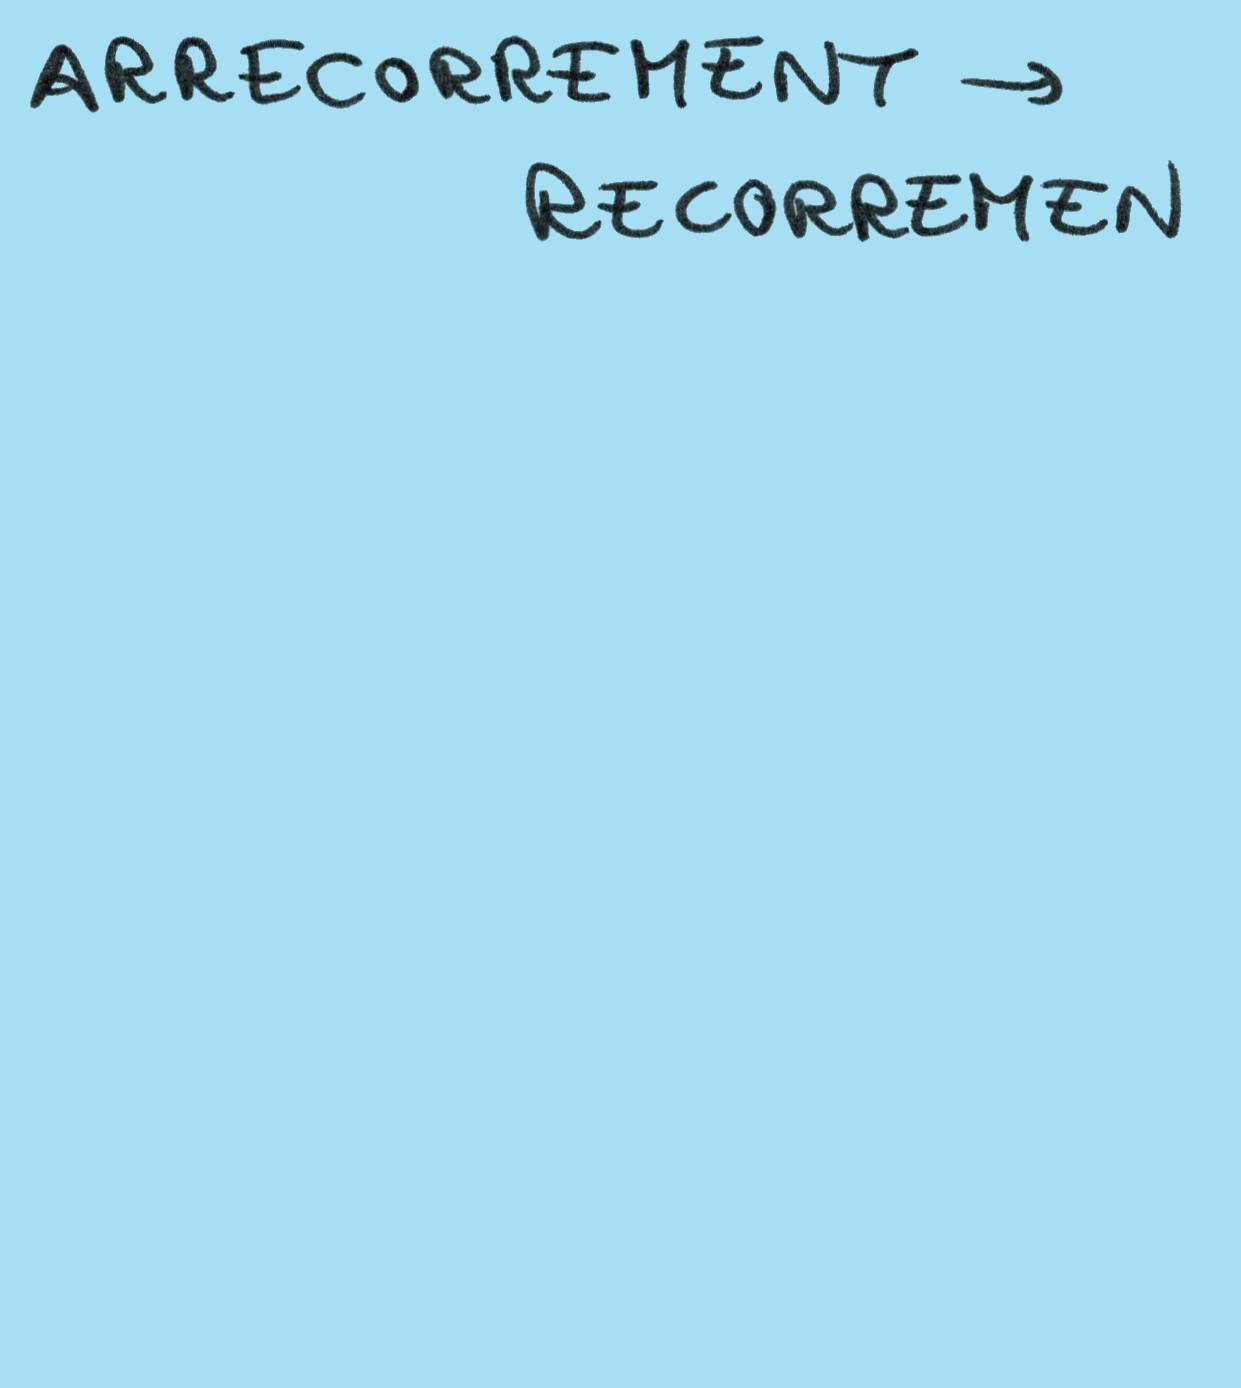 ARRECORREMENT →
RECORREMEN